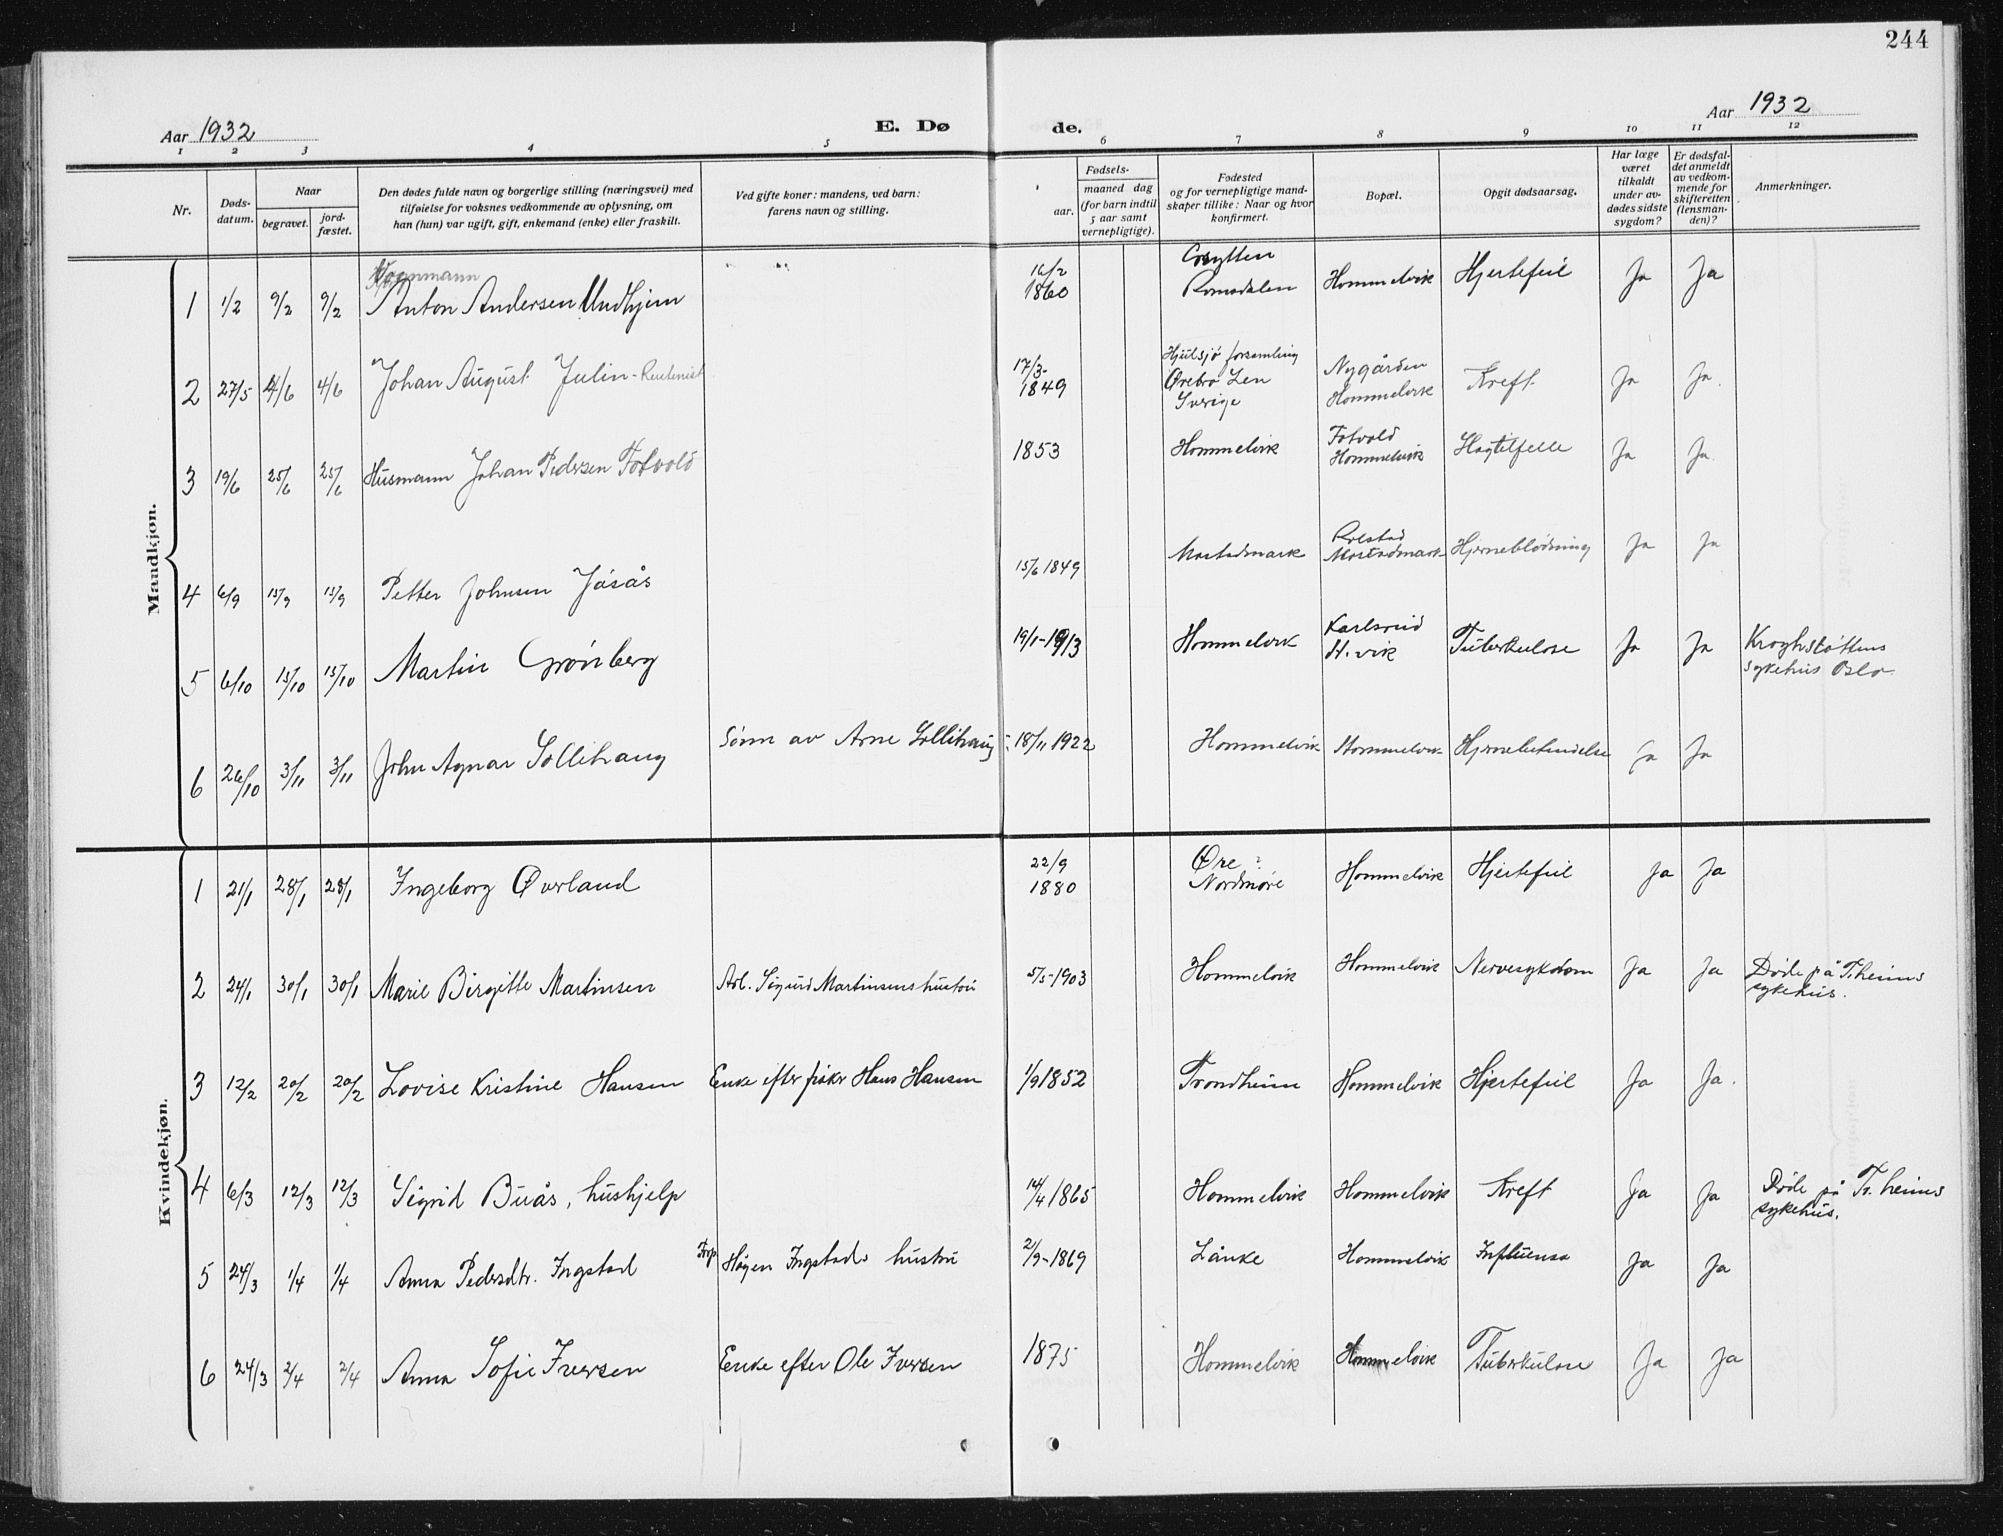 244
Aar 1932
E. Dø
de.
Aar 1932
1 2 3 4 5 6 7 8 9 10 11 12
Nr.
Døds-
datum.
Naar
begravet.
jord-
fæstet.
Den dødes fulde navn og borgerlige stilling (næringsvei) med
tilføielse for voksnes vedkommende av oplysning, om
han (hun) var ugift, gift, enkemand (enke) eller fraskilt.
Ved gifte koner: mandens, ved barn:
farens navn og stilling.
Fødsels-
aar.
maaned dag
(for barn indtil
5 aar samt
vernepligtige).
Fødested
og for vernepligtige mand-
skaper tillike: Naar og hvor
konfirmert.
Bopæl.
Opgit dødsaarsag.
Har læge
været
tilkaldt
under av-
dødes sidste
sygdom?
Er dødsfal-
det anmeldt
av vedkom-
mende for
skifteretten
(lensman-
den)?
Anmerkninger.
Mandkjøn.
Vognmann
1 1/2 9/2 9/2 Anton Andersen Undhjem 16/2 1860 Romsdalen Hommelvik Hjertefeil Ja Ja
2 27/5 4/6 4/6 Johan August Julin - Rentenist 17/3- 1849 Hjulsjø forsamling Ørebro Len Sverige Nygården Hommelvik Kreft Ja Ja.
3 19/6 25/6 25/6 Husmann Johan Pedersen Fotvold 1853 Hommelvik Fotvold Hommelvik Slagtilfelle Ja Ja.
4 6/9 15/9 15/9 Petter Johnsen Jøsås 15/6 1849 Mostadmark Rolstad Mostadmark Hjerneblødning Ja Ja
5 6/10 15/10 15/10 Martin Grønberg 19/1-1913 Hommelvik Karlsrud H.vik Tuberkulose Ja Ja Kroghstøttens sykehus Oslo.
6 26/10 3/11 3/11 John Agnar Sollihaug Sønn av Arne Sollihaug 18/11 1922 Hommelvik Hommelvik Hjernebetendelse Ja Ja
Kvindekjøn.
1 21/1 28/1 28/1 Ingeborg Øverland 22/9 1880 Øre? Nordmøre Hommelvik Hjertefeil Ja Ja
2 24/1 30/1 30/1 Marie Birgitte Martinsen Arb. Sigurd Martinsens hustru 5/5-1903 Hommelvik Hommelvik Nervesykdom Ja Ja Døde på T.heims sykehus.
3 12/2 20/2 20/2 Lovise Kristine Hansen Enke efter fisker Hans Hansen 1/9 1852 Trondheim Hommelvik Hjertefeil Ja Ja.
4 6/3 12/3 12/3 Sigrid Buås, hushjelp 14/4 1865 Hommelvik Hommelvik Kreft Ja Ja Døde på Tr.heims sykehus.
5 24/3 1/4 1/4 Anna Pedersdtr. Ingstad Hågen Ingstads hustru 2/9-1869 Lånke Hommelvik Influensa Ja Ja
6 24/3 2/4 2/4 Anna Sofie Iversen Enke efter Ole Iversen 1875 Hommelvik Hommelvik Tuberkulose Ja Ja